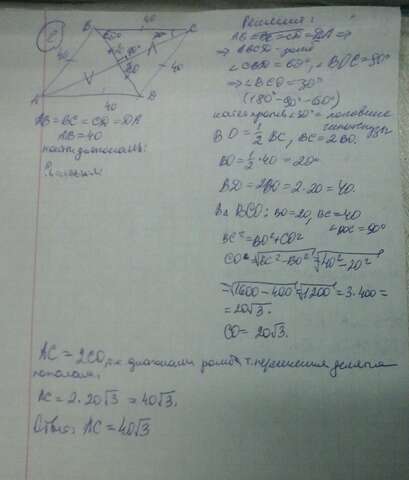 B 40 C
60° 30°
90°
60°
40
40
A 40 D
AB = BC = CD = DA
AB = 40
Решение:
AB = BC = CD = DA ⇒
⇒ ABCD - ромб
∠CBD = 60°, ∠BOC = 90°
⇒ ∠BCO = 30°
(180° - 90° - 60°)
катет против ∠30° = половине гипотенузы
BO = 1/2 BC, BC = 2BO.
BO = 1/2 · 40 = 20
BD = 2BO = 2 · 20 = 40.
BO = 20, BC = 40
BC² = BO² + CO²
CO = √BC² - BO² = √40² - 20²
= √1600 - 400 = √1200 = 3·400 =
= 20√3.
CO = 20√3.
AC = 2CO, диагонали ромба т. пересечения делятся
пополам.
AC = 2 · 20√3 = 40√3.
Ответ: AC = 40√3